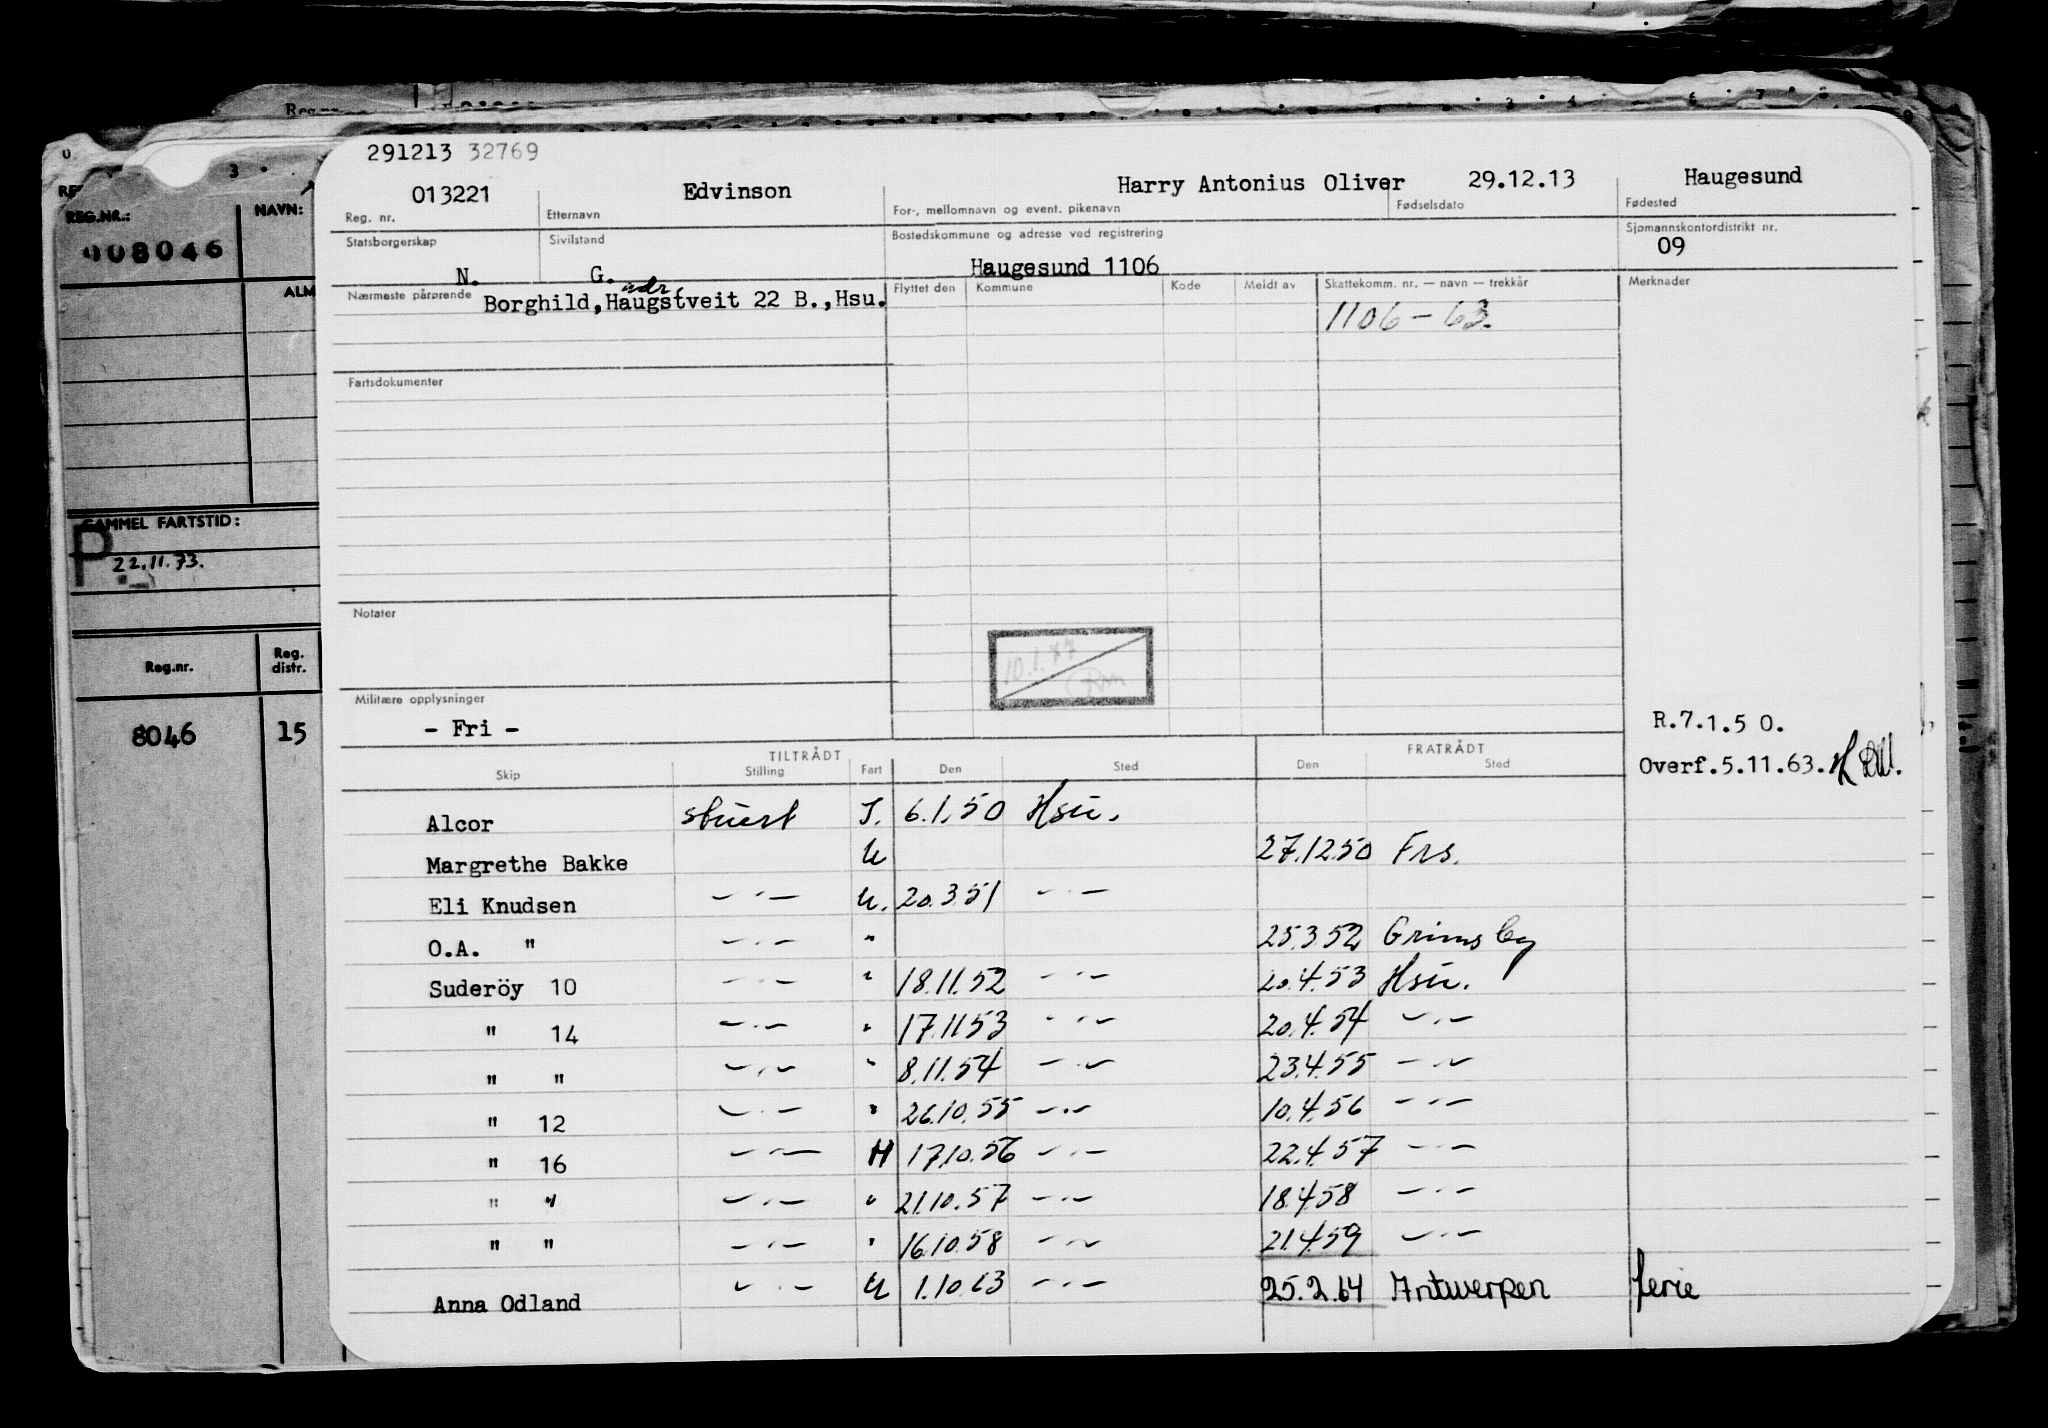 Reg.nr.
291213 32769
013221 Edvinson Harry Antonius Oliver 29.12.13 Haugesund
Reg. nr. Etternavn For-, mellomnavn og event. pikenavn Fødselsdato Fødested
Statsborgerskap Sivilstand Bostedskommune og adresse ved registrering Sjømannskontordistrikt nr.
N. G. Haugesund 1106 09
Nærmeste pårørende Flyttet den Kommune Kode Meldt av Skattekomm. nr. — navn — trekkår Merknader
adr
Borghild, Haugstveit 22 B.,Hsu. 1106 - 63.
Fartsdokumenter
Notater
10.1.77
Militære opplysninger
- Fri -
R.7.1.50.
Overf.5.11.63.
TILTRÅDT FRATRÅDT
Skip Stilling Fart Den Sted Den Sted
Alcor stuert I. 6.1.50 Hsu.
Margrethe Bakke U 27.12.50 Frs.
Eli Knudsen — " — U. 20.3.51 — " —
O.A. " — " — " 25.3.52 Grimsby
Suderöy 10 — " — " 18.11.52 — " — 20.4.53 Hsu.
" 14 — " — " 17.11.53 — " — 20.4.54 — " —
" " — " — " 8.11.54 — " — 23.4.55 — " —
" 12 — " — " 26.10.55 — " — 10.4.56 — " —
" 16 — " — H 17.10.56 — " — 22.4.57 — " —
" " — " — " 21.10.57 — " — 18.4.58 — " —
" " — " — " 16.10.58 — " — 21.4.59 — " —
Anna Odland — " — U 1.10.63 — " — 25.2.64 Antwerpen ferie
REG.NR.: NAVN:
008046
ALM
GAMMEL FARTSTID:
P
22.11.73.
Reg.nr. Reg. distr.
8046 15